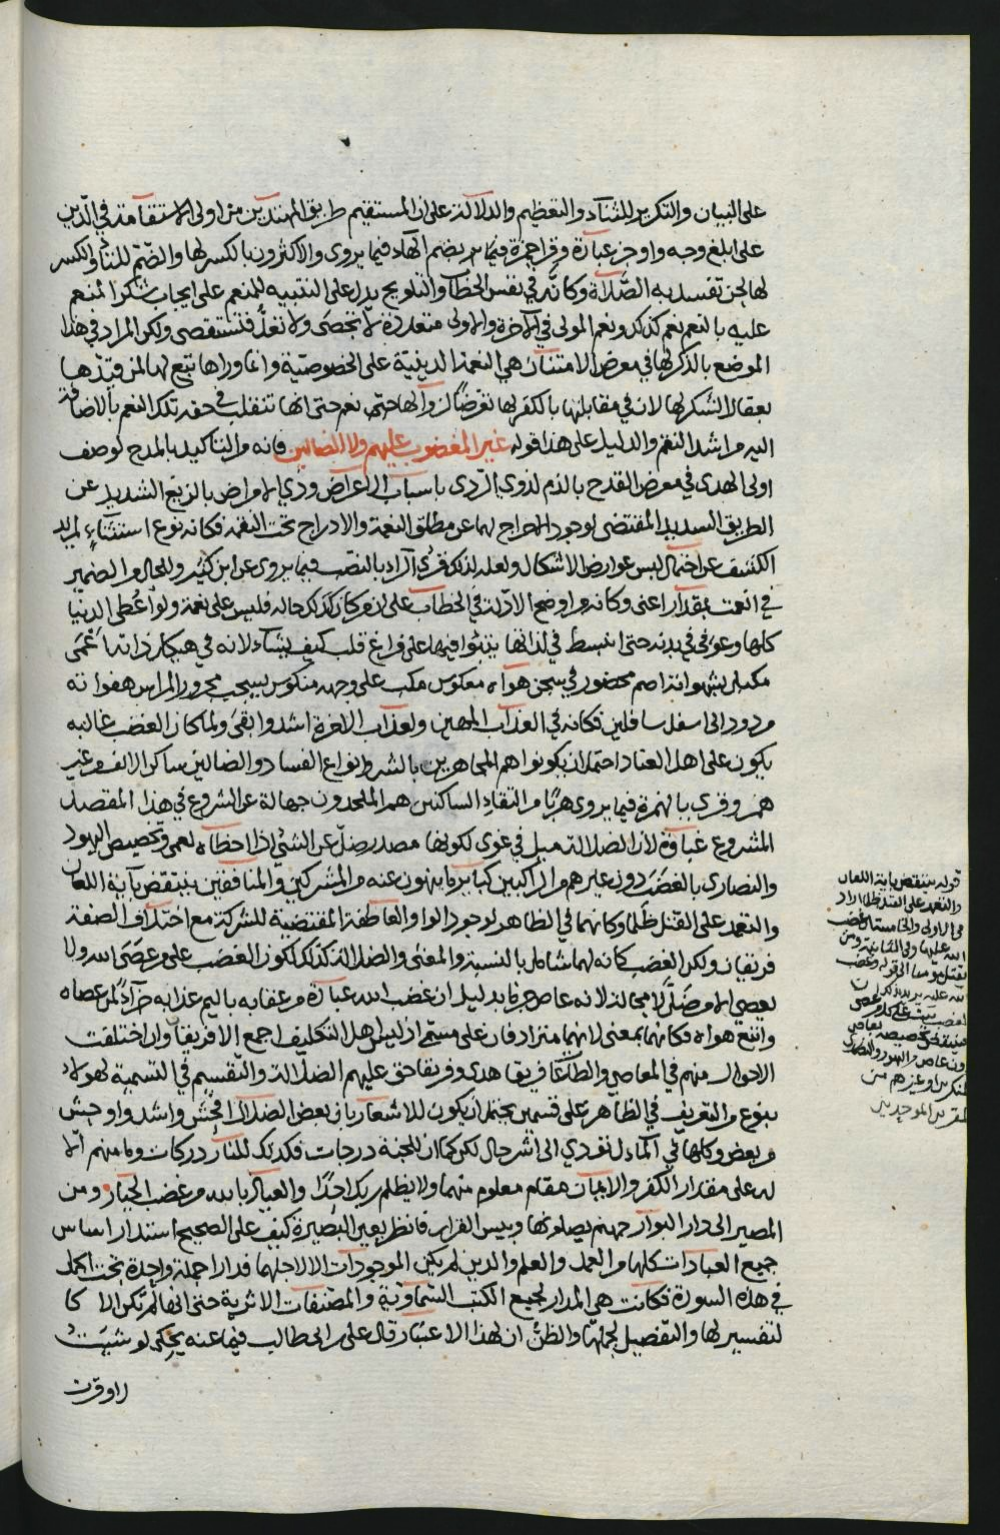 على البيان والتكرير للثناء والتعظيم والدلالة على ان المستقيم طريق المهتدين من اولى الاستقامة في الدين
على ابلغ وجه واوجز عبارة وقرا حمزة فيها بضم الهاء فيما يروى والاكثرون بالكسر لها والضم للتاء والكسر
لها لحن تفسد به الصلاة وكانه في نفس الخطاب والتلويح يدل على التنبيه للمنعم على ايجاب شكر المنعم
عليه بالنعم نعم كذلك ونعم المولى في الآخرة والاولى متعددة لا تحصى ولا تعد فتستقصى ولكن المراد في هذا
الموضع بالذكر لها في معرض الامتنان هي النعمة الدينية على الخصوصية وما وراها تبع لها لمن قيدها
بعقال الشكر لها لان في مقابلتها بالكفر لها تعرضا لزوالها حتى نعم حتى انها تنقلب في حقه تلك النعم بالاضافة
اليه من اشد النقم والدليل على هذا قوله غير المغضوب عليهم ولا الضالين فانه من التاكيد بالمدح لوصف
اولى الهدى في معرض القدح بالذم لذوي الردى باسباب الاعراض وذي الامراض بالزيغ الشديد عن
الطريق السديد المقتضى لوجود الاخراج لهما عن مطلق النعمة والادراج تحت النقمة فكانه نوع استثناء لمريد
الكشف عن احتمال لبس عوارض الاشكال ولعله لذلك قرئ الراء بالنصب فيما يروى عن ابن كثير والحال من الضمير
في انعمت بمقدار اعنى وكانه من اوضح الادلة في الخطاب على ان من كان كذلك حاله فليس على نعمة ولو اعطى الدنيا
كلها وعوفى في بدنه حتى انبسط في لذاتها يتبوا فيها على فراغ قلب كيف يشاء لانه في هيكل ذاته اعمى
مكبل بشهواته اصم محضور في سجن هواه معكوس مكب على وجهه منكوس يسحب مجرور المراس هفواته
مردود الى اسفل سافلين فكانه في العذاب المهين ولعذاب الاخرة اشد وابقى ولما كان الغضب غالبه
يكون على اهل العناد احتمل ان يكونوا هم المجاهرين بالشر وانواع الفساد والضالين ساكن الالف وغير
همز وقرئ بالهمزة فيما يروى هربا من التقاء الساكنين هم الملحدون جهالة عن الشروع في هذا المقصد
المشروع غباوة لان الضلالة ميل في غوى لكونها مصدر ضل عن الشئ اذا اخطاه لعمى وتخصيص اليهود
والنصارى بالغضب دون غيرهم من الراكبين كباير ما ينهون عنه من المشركين والمنافقين ينتقض بآية اللعان
والتعمد على القتل ظلما وكانهما في الظاهر لوجود الواو العاطفة المقتضية للشركة مع اختلاف الصفة
فريقان ولكن الغضب كانه لهما شامل بالنسبة والمعنى والضلالة كذلك لكون الغضب على من عصى الله ولا
يعصي الا من ضل لا محالة لانه عاص جزما بدليل ان غضب الله عبارة من عقابه باليم عذابه جزاء لمن عصاه
واتبع هواه فكانهما بمعنى لانهما مترادفان على مسمى اذ ليس اهل التكليف اجمع الا فريقان وان اختلفت
الاحوال منهم في المعاصي والطاعة فريقا هدى وفريقا حق عليهم الضلالة والتقسيم في التسمية لهولاء
بنوع من التعريف في الظاهر على قسمين يحتمل ان يكون للاشعار بان بعض الضلالة افحش واشد واوحش
من بعض وكلها في المآل تؤدي الى اشر حال لكن كما ان للجنة درجات فكذلك للنار دركات وما منهم الا
له على مقدار الكفر والايمان مقام معلوم منهما ولا يظلم ربك احدا والعياذ بالله من غضب الجبار ومن
المصير الى دار البوار جهنم يصلونها وبيس القرار فانظر بعين البصيرة كيف على الصحيح استدار اساس
جميع العبادات كلها من العمل والعلم والدين لم يكن الموجودات الا لاجلهما فدارا جملة واحدة تحت
في هذه السورة فكانت هي المدار لجميع الكتب السماوية والمصنفات الاثرية حتى انها لم تكن الا كا
لتفسير لها والتفصيل لجملتها والظن ان لهذا الاعتبار قال على بن ابى طالب فيما عنه يحكى لو شيت
ان اوقرن
قوله ينتقض باية اللعان
والتعمد على القتل ظلما اراد
في الاولى والخامسة ان غضب
الله عليها وفي الثانية ومن
يقتل مومنا الى قوله وغضب
الله عليه يريد بذلك ان
الغضب يقع على كل من عصى
فينتقض تخصيصه بعاص
دون عاص من اليهود والنصارى
المنكرين او غيرهم من
المقرين الموحدين